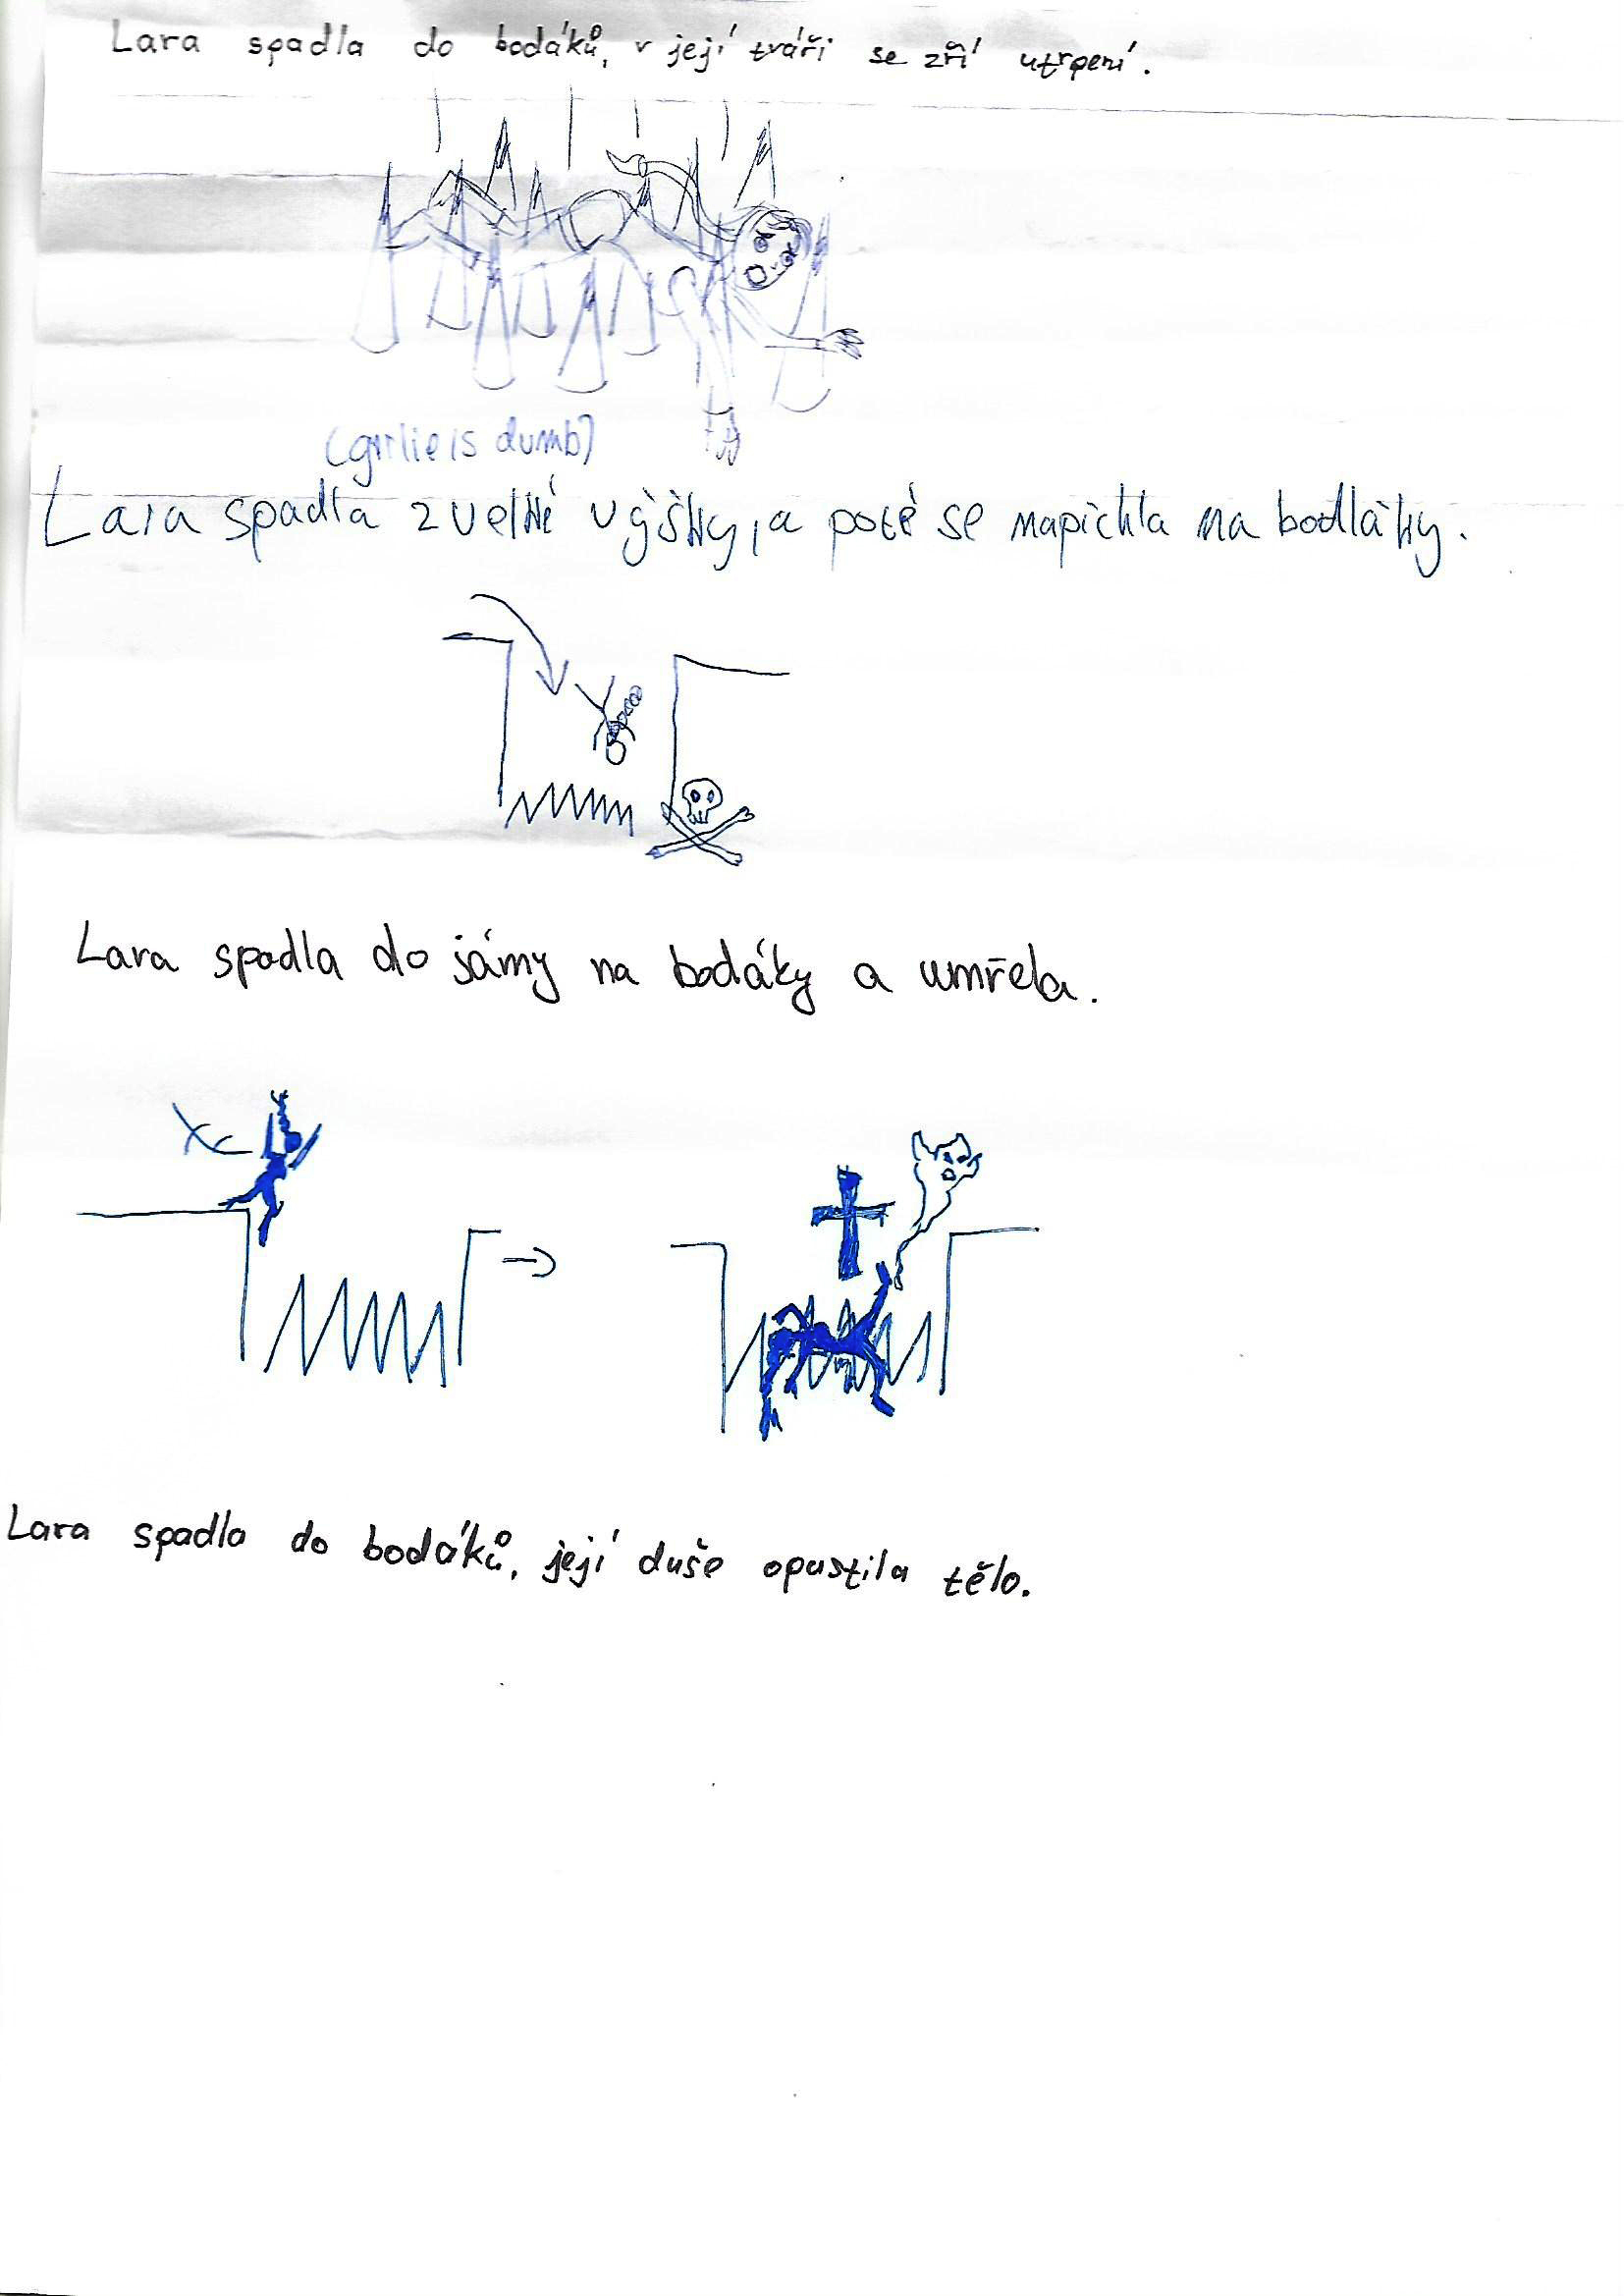 Lara spadla do bodáků, v její tváři se zří utrpení.
(girlie is dumb)
Lara spadla z velké výšky, a poté se napíchla na bodláky.
Lara spadla do jámy na bodáky a umřela.
Lara spadla do bodáků, její duše opustila tělo.